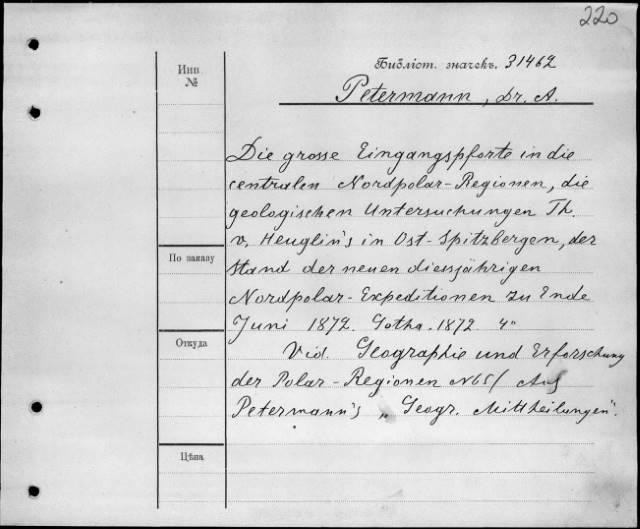 220
Инв.
№
Библіот. значекъ. 31462
Petermann, Dr. A.
Die grosse Eingangspforte in die
centralen Nordpolar-Regionen, die
geologischen Untersuchungen Th.
v. Heuglin's in Ost-Spitzbergen, der
По заказу
Stand der neuen diessjährigen
Nordpolar-Expeditionen zu Ende
Juni 1872. Gotha. 1872. 4°
Откуда
Vid. Geographie und Erforschung
der Polar-Regionen № 65/ Aus
Petermann's „Geogr. Mittheilungen".
Цѣна